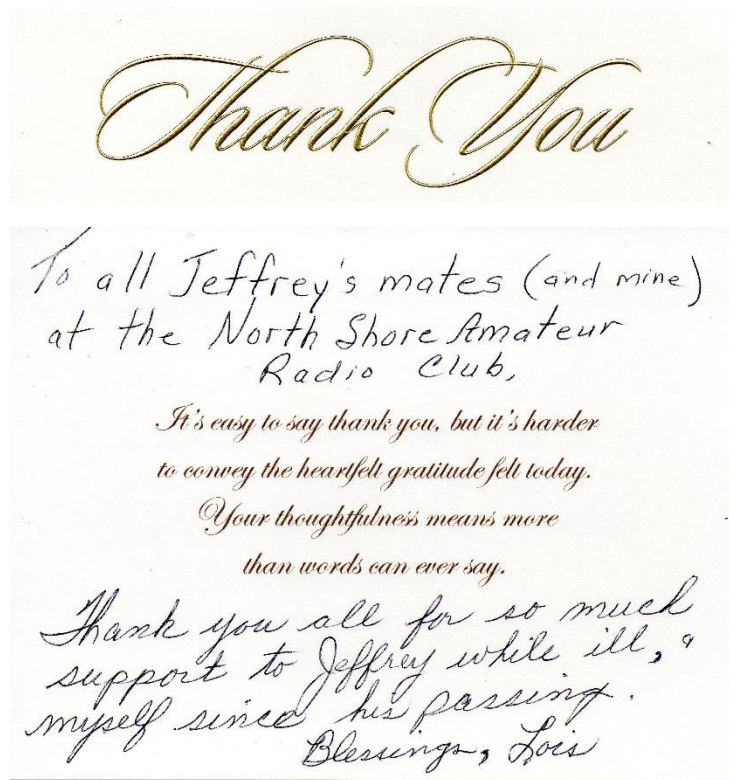 Thank You
To all Jeffrey's mates (and mine)
at the North Shore Amateur
Radio Club,
It's easy to say thank you, but it's harder
to convey the heartfelt gratitude felt today.
Your thoughtfulness means more
than words can ever say.
Thank you all for so much
support to Jeffrey while ill,
myself since his passing.
Blessings, Lois